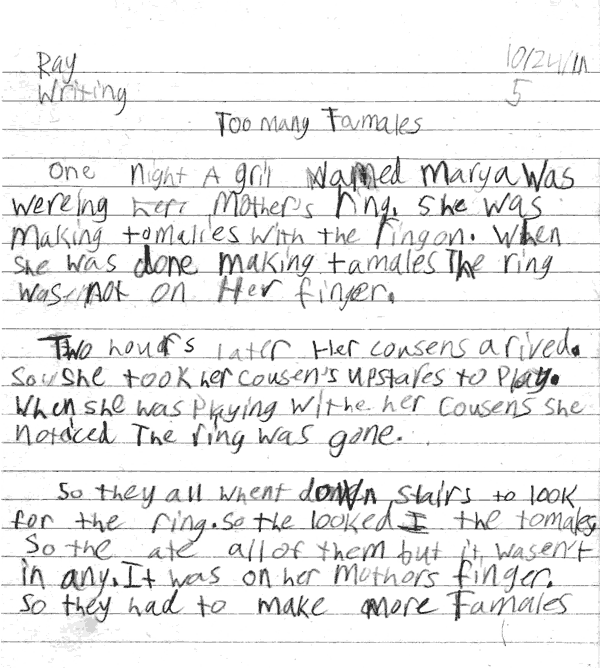 Ray
10/24/11
Writing
5
Too many Tamales
One night A gril Named Marya Was
wereing her Mother's ring. she was
making tomalies with the ring on. When
she was done making tamales The ring
was not on Her finger.
Two hours later Her consens arived.
So she took her cousen's upstares to play.
When she was Playing withe her cousens she
notaced The ring was gone.
So they all whent down stairs to look
for the ring. So the looked I the tomales
So the ate all of them but it wasen't
in any. It was on her mothors finger.
So they had to make more Tamales